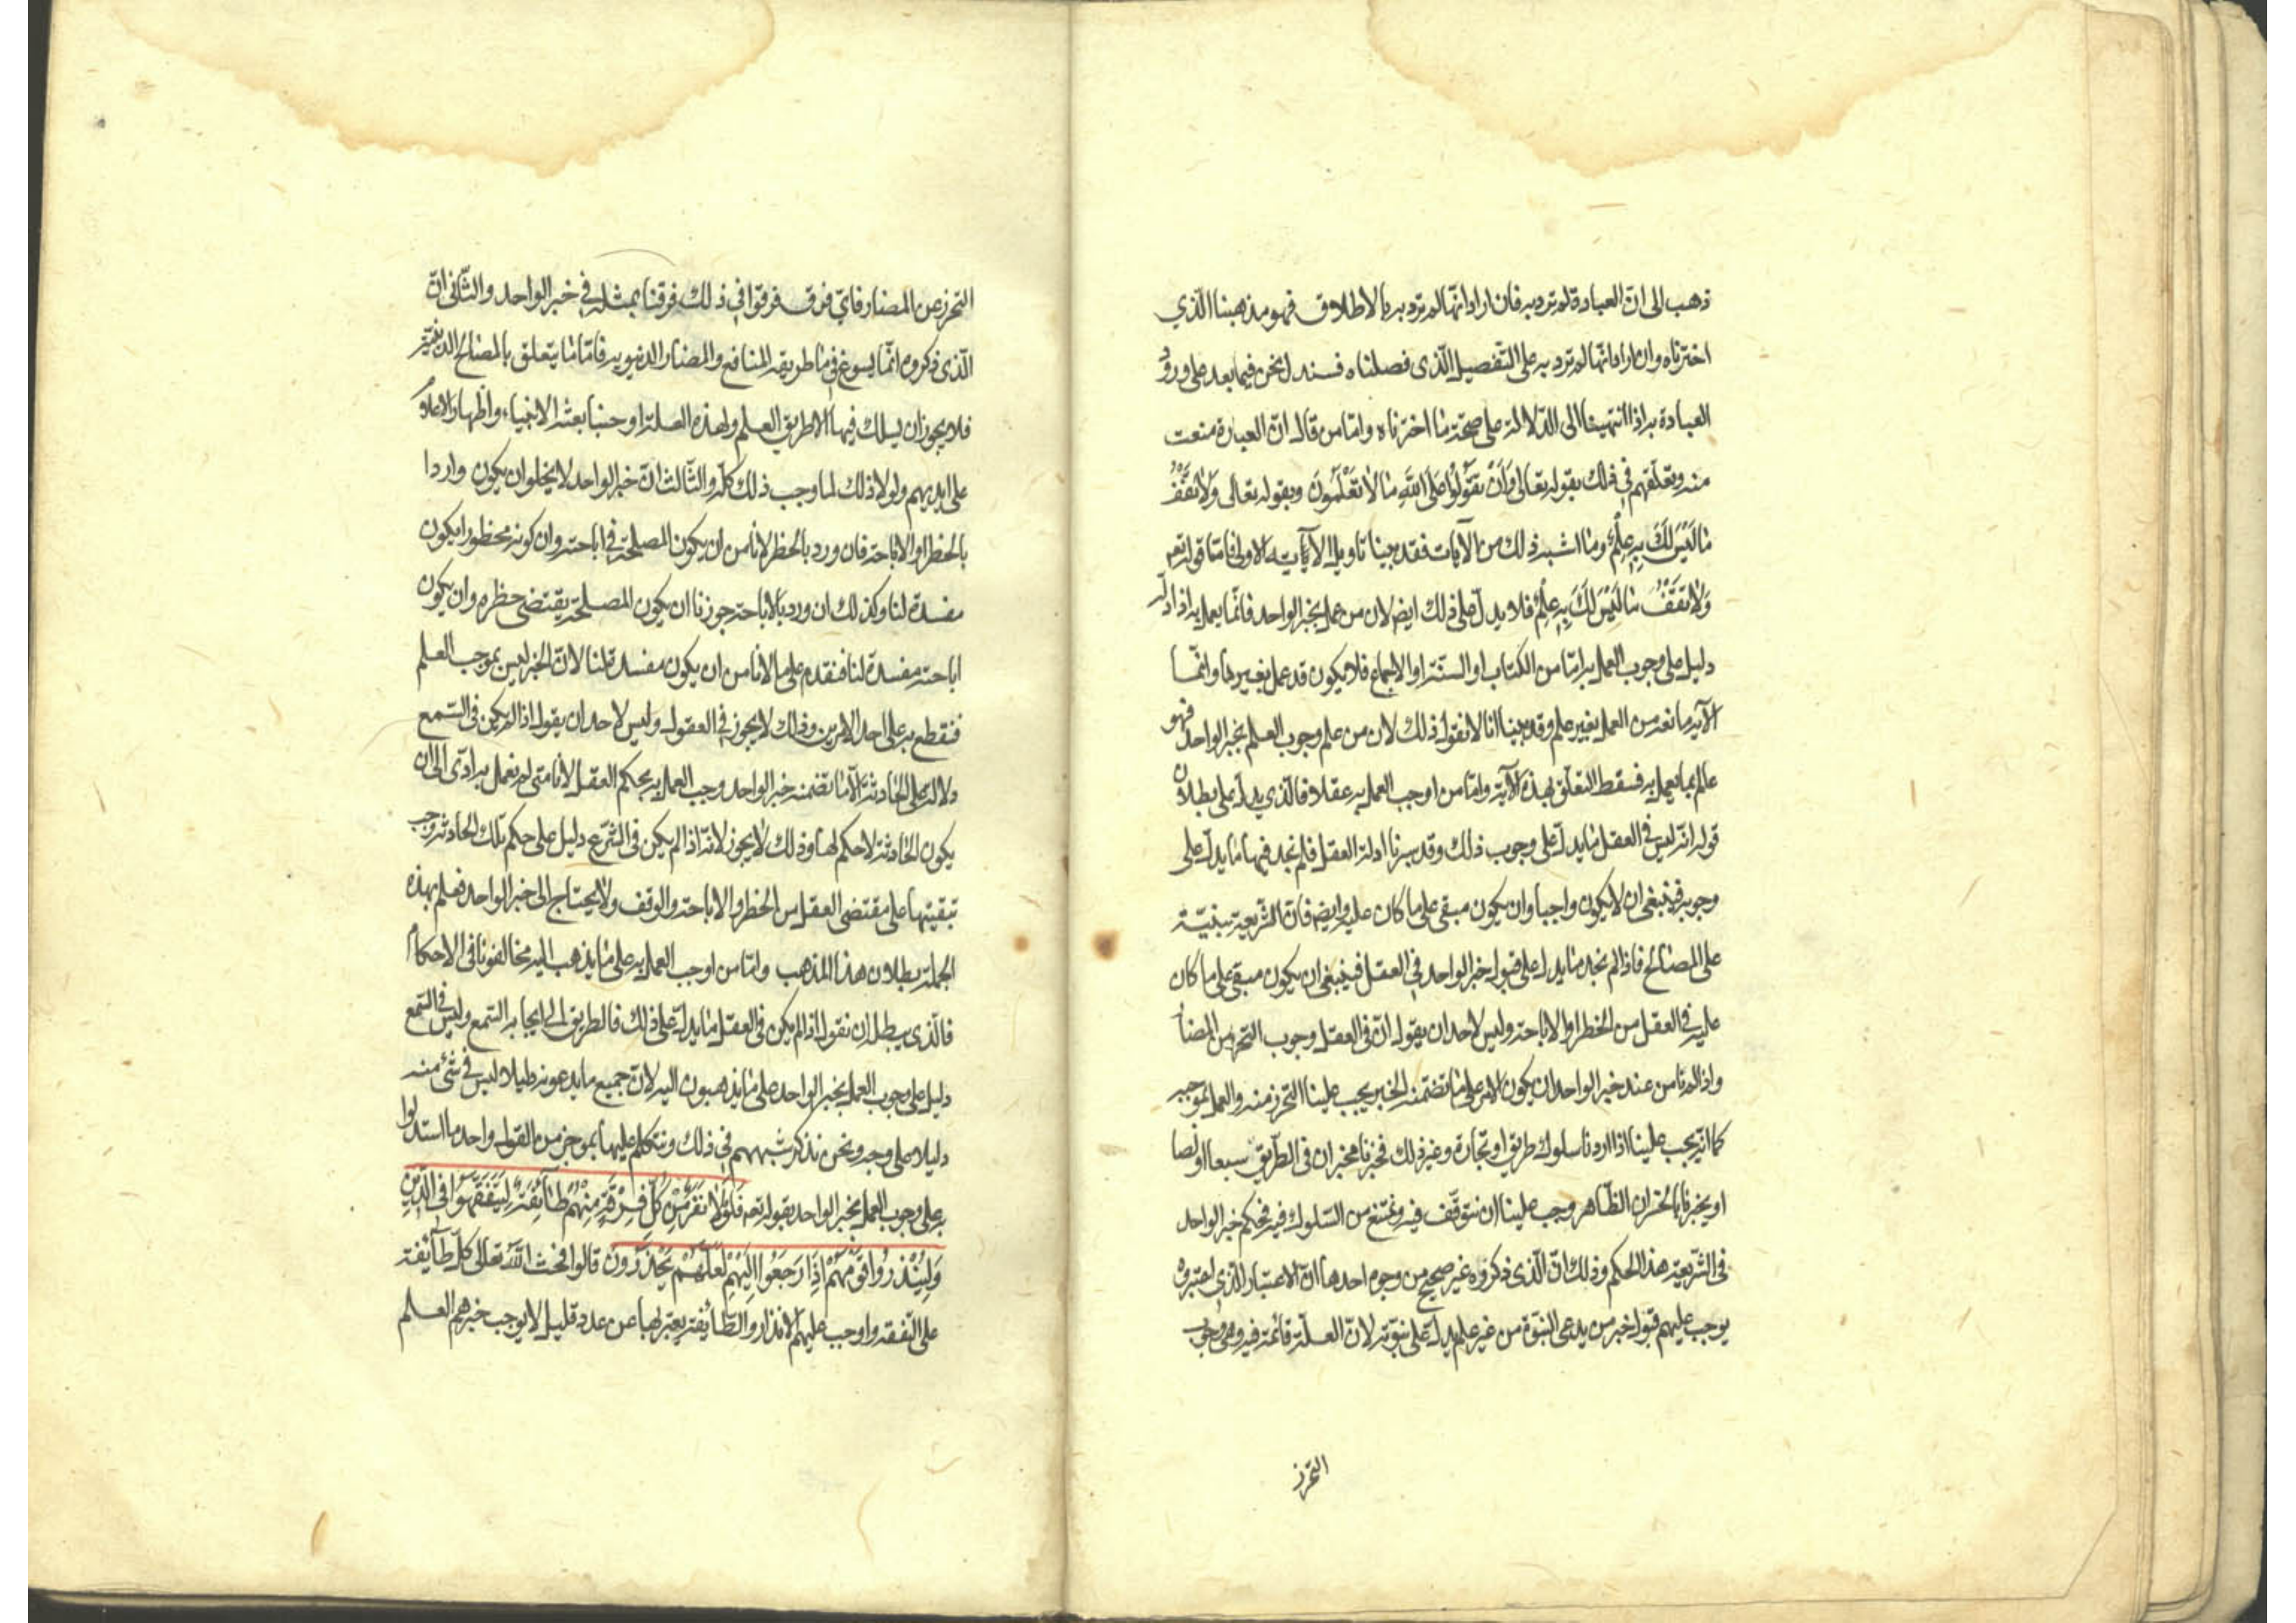 ذهب الى ان العبادة لم ترد به فان اراد انها لم ترد به بالاطلاق فهو مذهبنا الذي
اخترناه وان اراد انها لم ترد به على التفصيل الذى فصلناه فسندل نحن فيما بعد على ورود
العبادة به اذا انتهينا الى الدلالة على صحة ما اخترناه واما من قال ان العبادة منعت
منه وتعلقهم في ذلك بقوله تعالى وَاَنْ تَقُولُوا عَلَى اللهِ مَا لَا تَعْلَمُونَ وبقوله تعالى وَلَا تَقْفُ
مَا لَيْسَ لَكَ بِهِ عِلْمٌ وما اشبه ذلك من الآيات فقد بينا تاويل الآية الاولى فاما قوله تعم
وَلَا تَقْفُ مَا لَيْسَ لَكَ بِهِ عِلْمٌ فلا يدل على ذلك ايضا لان من عمل بخبر الواحد فانما يعمل به اذا دل
دليل على وجوب العمل به اما من الكتاب او السنة او الاجماع فلا يكون قد عمل بغير علم وانما
الآية مانعة من العمل بغير علم وقد بينا انا لا نقول ذلك لان من علم وجوب العلم بخبر الواحد فهو
عالم بما يعمل به فسقط التعلق بهذه الآية واما من اوجب العمل به عقلا فالذى يدل على بطلان
قوله انه ليس في العقل ما يدل على وجوب ذلك وقد سبرنا ادلة العقل فلم نجد فيها ما يدل على
وجوبه فينبغى ان لا يكون واجبا وان يكون مبقى على ما كان عليه وايضا فان الشريعة مبنية
على المصالح فاذا لم نجد ما يدل على قبول خبر الواحد في العقل فينبغى ان يكون مبقى على ما كان
عليه في العقل من الحظر او الاباحة وليس لاحد ان يقول ان في العقل وجوب التحرز من المضار
واذا لم نامن عند خبر الواحد ان يكون الامر على ما تضمنه الخبر يجب علينا التحرز منه والعمل بموجبه
كما انه يجب علينا اذا اردنا سلوك طريق او تجارة وغير ذلك فخبرنا مخبر ان في الطريق سبعا او لصا
او يخبرنا بالخسران الظاهر وجب علينا ان نتوقف فيه ونمتنع من السلوك فيه فحكم خبر الواحد
فى الشريعة هذا الحكم وذلك ان الذى ذكروه غير صحيح من وجوه احدها ان الاعتبار الذي اعتبروه
يوجب عليهم قبول خبر من يدعى النبوة من غير علم يدل على نبوته لان العلة قائمة فيه وهى وجوب
التحرز
التحرز عن المضار فاي فرق فرقوا في ذلك فرقنا بمثله في خبر الواحد والثانى ان
الذى ذكروه انما يسوغ في ما طريقه المنافع والمضار الدنيوية فاما ما يتعلق بالمصالح الدينية
فلا يجوز ان يسلك فيها الا طريق العلم ولهذه العلة اوجبنا بعثة الانبياء واظهار الاعلام
على ايديهم ولولا ذلك لما وجب ذلك كله والثالث ان خبر الواحد لا يخلوا ان يكون واردا
بالحظر او الاباحة فان ورد بالحظر لا نامن ان يكون المصلحة في اباحته وان كونه محظورا يكون
مفسدة لنا وكذلك ان ورد بالاباحة جوزنا ان يكون المصلحة يقتضى حظره وان يكون
اباحته مفسدة لنا فنقدم على ما لا نامن ان يكون مفسدة لنا لان الخبر ليس بموجب العلم
فنقطع به على احد الامرين وذلك لا يجوز في العقول وليس لاحد ان يقول اذا لم يكن في السمع
دلالة على الحادثة الا ما تضمنه خبر الواحد وجب العمل به بحكم العقل لانا متى لم نعمل به ادى الى ان
يكون الحادثة لا حكم لها وذلك لا يجوز لانه اذا لم يكن في الشرع دليل على حكم تلك الحادثة وجب
تبقيتها على مقتضى العقل من الحظر والاباحة والوقف ولا يحتاج الى خبر الواحد فعلم بهذه
الجملة بطلان هذا المذهب واما من اوجب العمل به على ما يذهب اليه مخالفونا في الاحكام
فالذى يبطله ان نقول اذا لم يكن في العقل ما يدل على ذلك فالطريق الى ايجابه السمع وليس في السمع
دليل على وجوب العمل بخبر الواحد على ما يذهبون اليه لان جميع ما يدعونه دليلا ليس في شئ منه
دليلا على وجه ونحن نذكر شبههم في ذلك ونتكلم عليها بموجز من القول واحد ما استدلوا
به على وجوب العمل بخبر الواحد بقوله تعم فَلَوْلَا نَفَرَ مِنْ كُلِّ فِرْقَةٍ مِنْهُمْ طَائِفَةٌ لِيَتَفَقَّهُوا فِي الدِّينِ
وَلِيُنْذِرُوا قَوْمَهُمْ اِذَا رَجَعُوا اِلَيْهِمْ لَعَلَّهُمْ يَحْذَرُونَ قالوا فحث الله تعالى كل طائفة
على التفقه واوجب عليهم الانذار والطائفة يعتبر بها عن عدد قليل لا يوجب خبرهم العلم